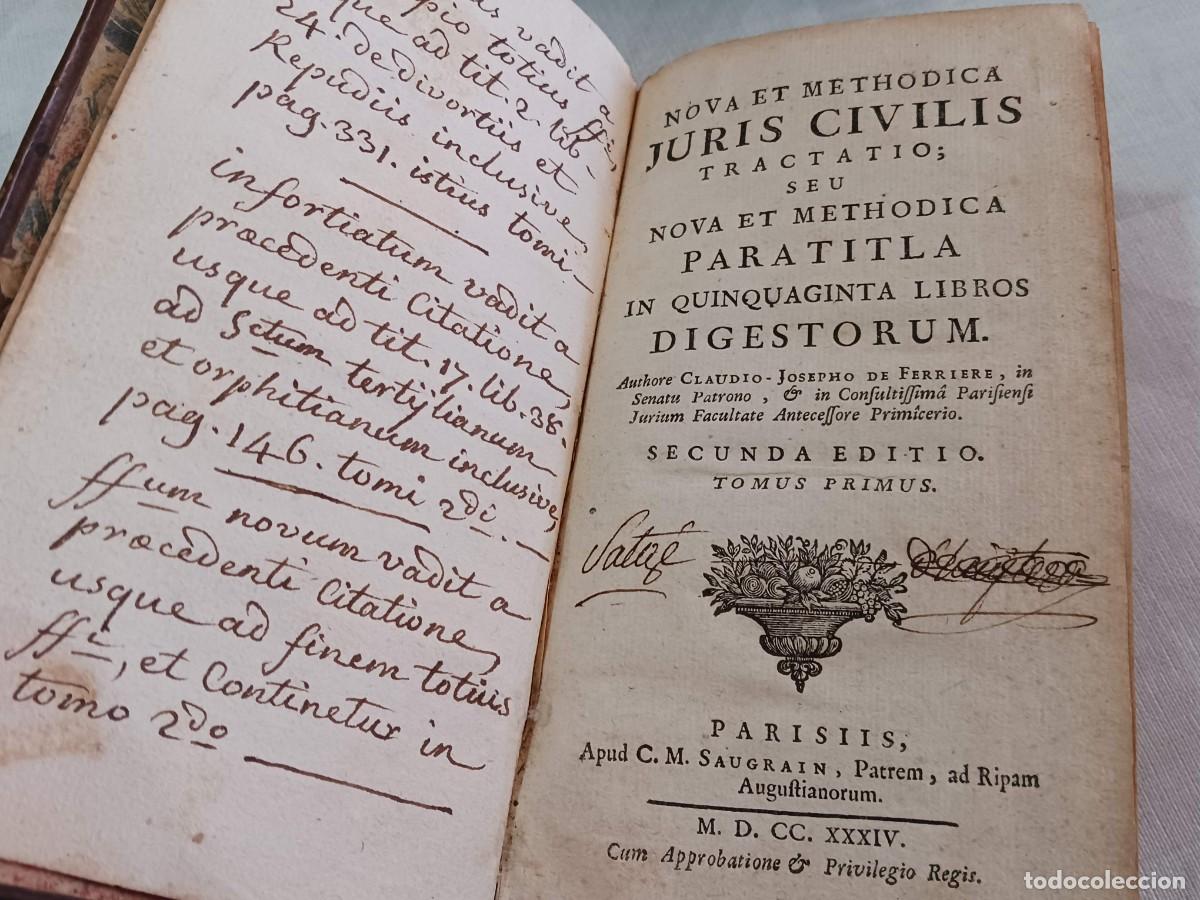 vadit a
totius ffi,
que ad tit. 2. lib.
24. de divortiis et
Repudiis inclusive,
pag. 331. istius tomi
infortiatum vadit a
præcedenti Citatione,
usque ad tit. 17. lib. 38.
ad Sctum tertyllianum
et orphitianum inclusive,
pag. 146. tomi 2di.
ffum novum vadit a
præcedenti Citatione,
usque ad finem totius
ffi, et Continetur in
tomo 2do
NOVA ET METHODICA
JURIS CIVILIS
TRACTATIO;
SEU
NOVA ET METHODICA
PARATITLA
IN QUINQUAGINTA LIBROS
DIGESTORUM.
Authore CLAUDIO-JOSEPHO DE FERRIERE, in
Senatu Patrono, & in Consultissimâ Parisiensi
Jurium Facultate Antecessore Primicerio.
SECUNDA EDITIO.
TOMUS PRIMUS.
PARISIIS,
Apud C. M. SAUGRAIN, Patrem, ad Ripam
Augustianorum.
M. D. CC. XXXIV.
Cum Approbatione & Privilegio Regis.
todocoleccion